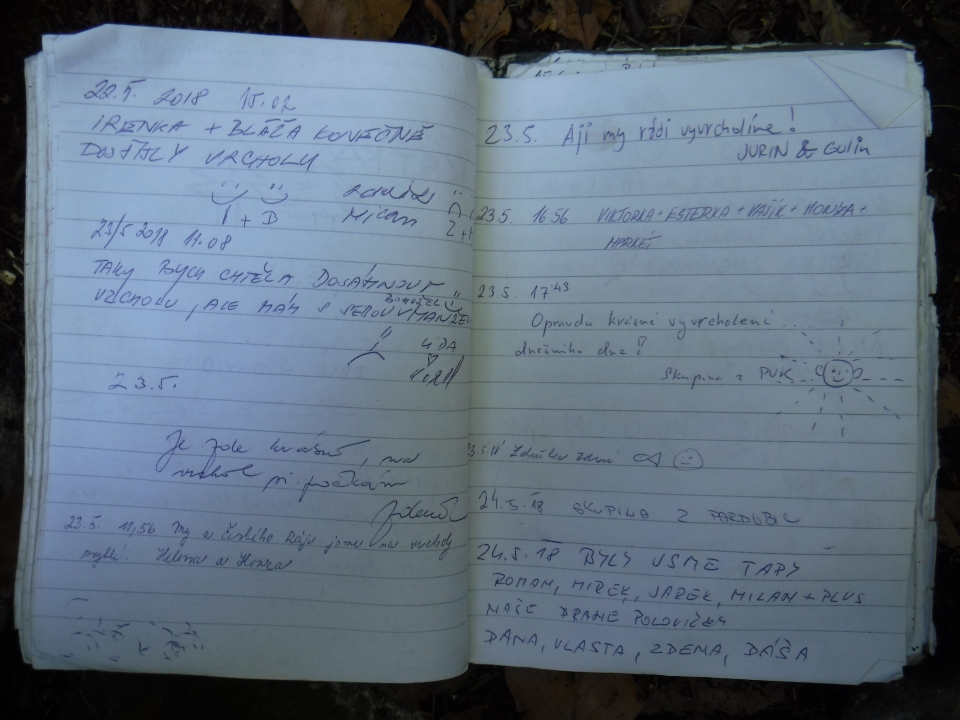 22.5. 2018 15.02
IRENKA + BLÁŽA KONEČNĚ
DOSÁHLY VRCHOLU
I + D
Milan
23/5 2018 11.08
TAKY BYCH CHTĚLA DOSÁHNOUT
VRCHOLU, ALE MÁM S SEBOU MANŽE
BOHUŽEL
23.5.
Je zde krásně, na
vrchol si počkám
Zdeněk
23.5. 11,56 My z Českého Ráje jsme na vrcholy
zvyklí. Helena a Honza
23.5. Aji my rádi vyvrcholíme!
JURIN & Gulin
23.5. 16 56 VIKTORKA + ESTERKA + VAŠÍK + HONZA +
MARKÉT
23.5. 17 43
Opravdu krásné vyvrcholení
dnešního dne!
Skupina z PUK
23.5.18 Zdeněk zdraví
24.5.18 SKUPINA Z PARDUBIC
24.5.18 BYLY JSME TADY
ROMAN, MIREK, JAREK, MILAN + PLUS
NAŠE DRAHÉ POLOVIČKY
DANA, VLASTA, ZDENA, DÁŠA